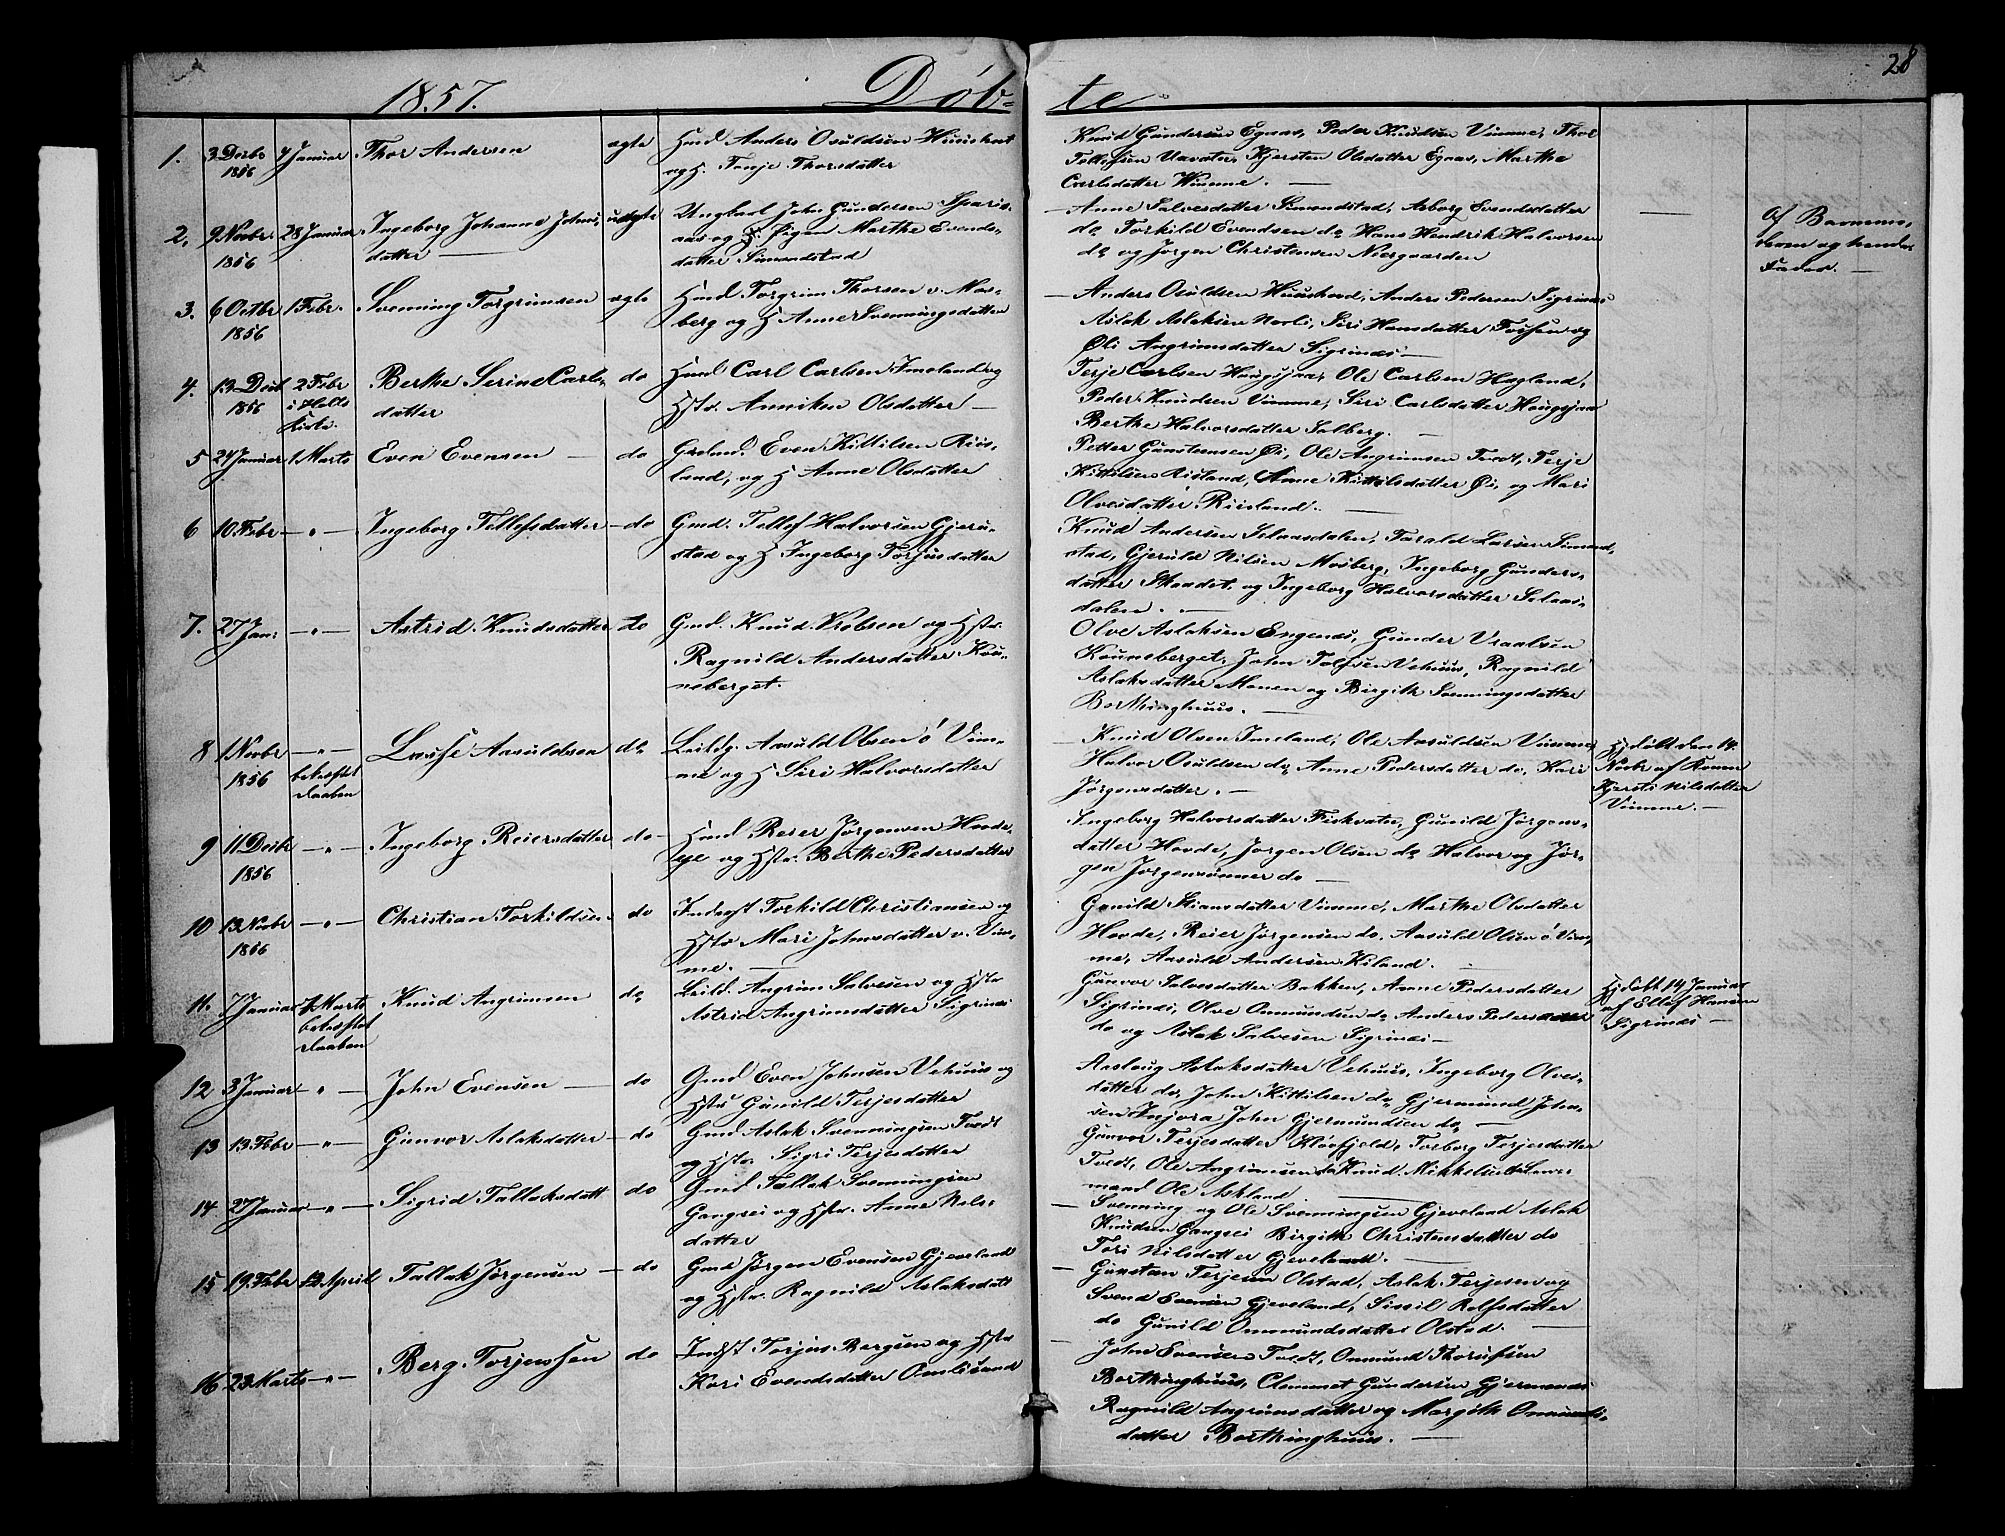 28
1857. Døb- te
1. 3 Decbr 1856 7 Januar Thor Andersen ægte Hmd Anders Osuldsen
og H. Tonje Thorsdatter
Knud Gundersen Egnæs, Peder Knudsen Vimme, Thor
Tellefsen Uavatn, Kjersten Olsdatter Egnæs, Marthe
Carlsdatter Vimme. —
2. 9 Novbr 1856 28 Januar Ingeborg Johanne Johns-
datter — uægte Ungkarl John Gundersen
aas og Pigen Marthe Evends-
datter Simonstad
— Anne Salvesdatter Simonstad, Asborg Svendsdatter
do Torkild Evendsen do Hans Hendrik Halvorsen
do og Jørgen Christensen Næsgaarden
Af Barnemo-
deren og hendes
Fader. —
3. 6 Octbr 1856 1 Febr. Svenning Torgrimsen ægte Hmd Torgrim Thorsen v. Mos-
berg og H Anne Svenningsdatter
— Anders Osuldsen Anders Pedersen Sigrinæs
Aslak Aslaksen Siri Hansdatter og
Oli Angrimsdatter Sigrinæs —
4. 13 Decb 1856 2 Febr i Holts Kirke. Berthe Serine Carls-
datter do Hmd Carl Carlsen Imeland og
Hstr. Anniken Olsdatter —
Terje Carlsen Hougsjaa, Ole Carlsen Hagland,
Peder Knudsen Vimme, Siri Carlsdatter Hougsjaa
Berthe Halvorsdatter Solberg. —
5 24 Januar 1 Marts Even Evensen — do Even Kittilsen Riis-
land, og H Anne Olsdatter
Petter Gunstensen Øi, Ole Angrimsen Tvedt, Terje
Kittilsen Risland, Anne Kittilsdatter Øi, og Mari
Olvesdatter Riisland. —
6 10 Febr —"— Ingeborg Tellefsdatter — do Gmd. Tellef Halvorsen Gjeru-
stad og H Ingeborg Torjusdatter
Knud Andersen Selaasdalen, Tarald Larsen Simon-
stad, Gjeruld Nilsen Mosberg, Ingeborg Gunders-
datter og Ingeborg Halvorsdatter Selaas-
dalen. —
7. 27 Jan: —"— Astrid Knudsdatter do Gmd. Knud og Hstr.
Ragnild Andersdatter Kou-
neberget.
Olve Aslaksen Engenæs, Gunder Vraalsen
Kouneberget, John Tolfsen Vehuus, Ragnild
Aslaksdatter Monen og Birgith Svenningsdatter
Borkinghuus. —
8 1 Novbr 1856 —"— bekræftet Daaben Lasse Aasuldsen do Leildg. Aasuld Olsen ö Vim-
me og H Siri Halvorsdatter
— Knud Olsen Imeland, Ole Aasuldsen Vimme,
Halvor Osuldsen do, Anne Pedersdatter do, Kari
Jørgensdatter. —
Hj. døbt den 14
Novbr af Konen
Kjersti Nilsdatter
Vimme. —
9 11 Decbr 1856 —"— Ingeborg Reiersdatter do — Hmd Reier Jørgensen Hovde
eje og Hstr. Berthe Pedersdatter
Ingeborg Halvorsdatter Fiskvatn, Gunild Jørgens-
datter Hovde, Jørgen Olsen do Halvor og Jør-
gen Jørgensønner do —
10 13 Novbr 1856 —"— Christian Torkildsen do Inderst Torkild Christiansen og
Hstr Mari Johnsdatter v. Vim-
me. —
Gunild Stiansdatter Vimme, Marthe Olsdatter
Hovde, Reier Jørgensen do. Aasuld Olsen ö Vim-
me, Aasuld Andersen Kiland. —
11. 7 Januar 1 Marts bekræftet Daaben Knud Angrimsen do Leild. Angrim Salvesen og Hstr
Astrid Angrimsdatter Sigrinæs
Gunvor Salvesdatter Bakken, Anne Pedersdatter
Sigrinæs, Olve Ommundsen do Anders Pedersen
do og Aslak Salvesen Sigrinæs —
Hj. døbt 14 Januar
af Ellef Hansen
Sigrinæs —
12 3 Januar —"— John Evensen — do Gmd Even Johnsen Vehuus og
Hstr Gunild Terjesdatter
Aaslaug Aslaksdatter Vehuus, Ingeborg Olves-
datter do, John Kittilsen do Gjermund John-
sen John Gjermundsen do —
13 13 Febr —"— Gunvor Aslaksdatter — do Gmd Aslak Svenningsen Tvedt
og Hstr. Sigri Terjesdatter
Gunvor Terjesdatter Kløvfjeld, Torborg Terjesdatter
Tvedt, Ole Angrimsen do Knud Mikkelsen
mand Ole Askland. —
14 27 Januar —"— Sigrid Tallaksdatt do Gmd Tallak Svenningsen
Gangsei og Hstr. Anne Nils-
datter
— Svenning og Ole Svenningsen Gjeveland Aslak
Knudsen Gangsei Birgith Christensdatter do
Tori Nilsdatter Gjeveland. —
15 19 Febr 12 April Tallak Jørgensen — do Gmd Jørgen Evensen Gjeveland
og Hstr. Ragnild Aslaksdatt
— Gunstan Terjesen Olstad, Aslak Terjesen og
Svend Evensen Gjeveland, Sissil Rolfsdatter
do Gunild Ommundsdatter Olstad. —
16 23 Marts —"— Berg Torjussen do Indst Torjus Bergsen og Hstr
Kari Evendsdatter Omlisand
— John Evensen Tvedt, Onmund
Borkinghuus, Clemmet Gundersen Gjermenes
Ragnild Angrimsdatter og Margith Onmunds-
datter Borkinghuus. —